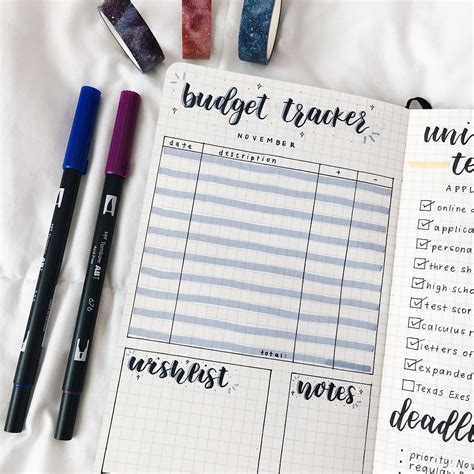 budget tracker
NOVEMBER
date description + -
total:
wishlist
notes
uni
te
APPL
online a
applica
persona
three sh
high sche
test scor
calculus r
letters of
expanded
Texas Exes
deadl
priority: Nov
regular:
Tombow ABT
676